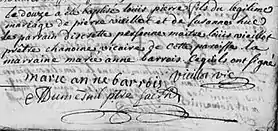 le douze a été baptisé louis pierre fils du légitime
mariage de pierre vieillot et de susanne
le parrain discrette personne maitre louis vieillot
prêtre chanoine vicaire de cette paroisse la
marraine marie anne barrois lesquels ont signé
marie anne barrois vieillot vic
Dumesnil ptre